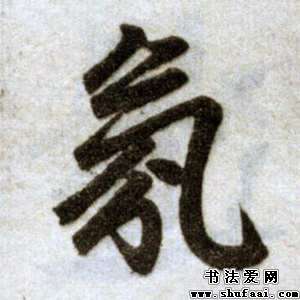 氛
书法爱网
www.shufaai.com